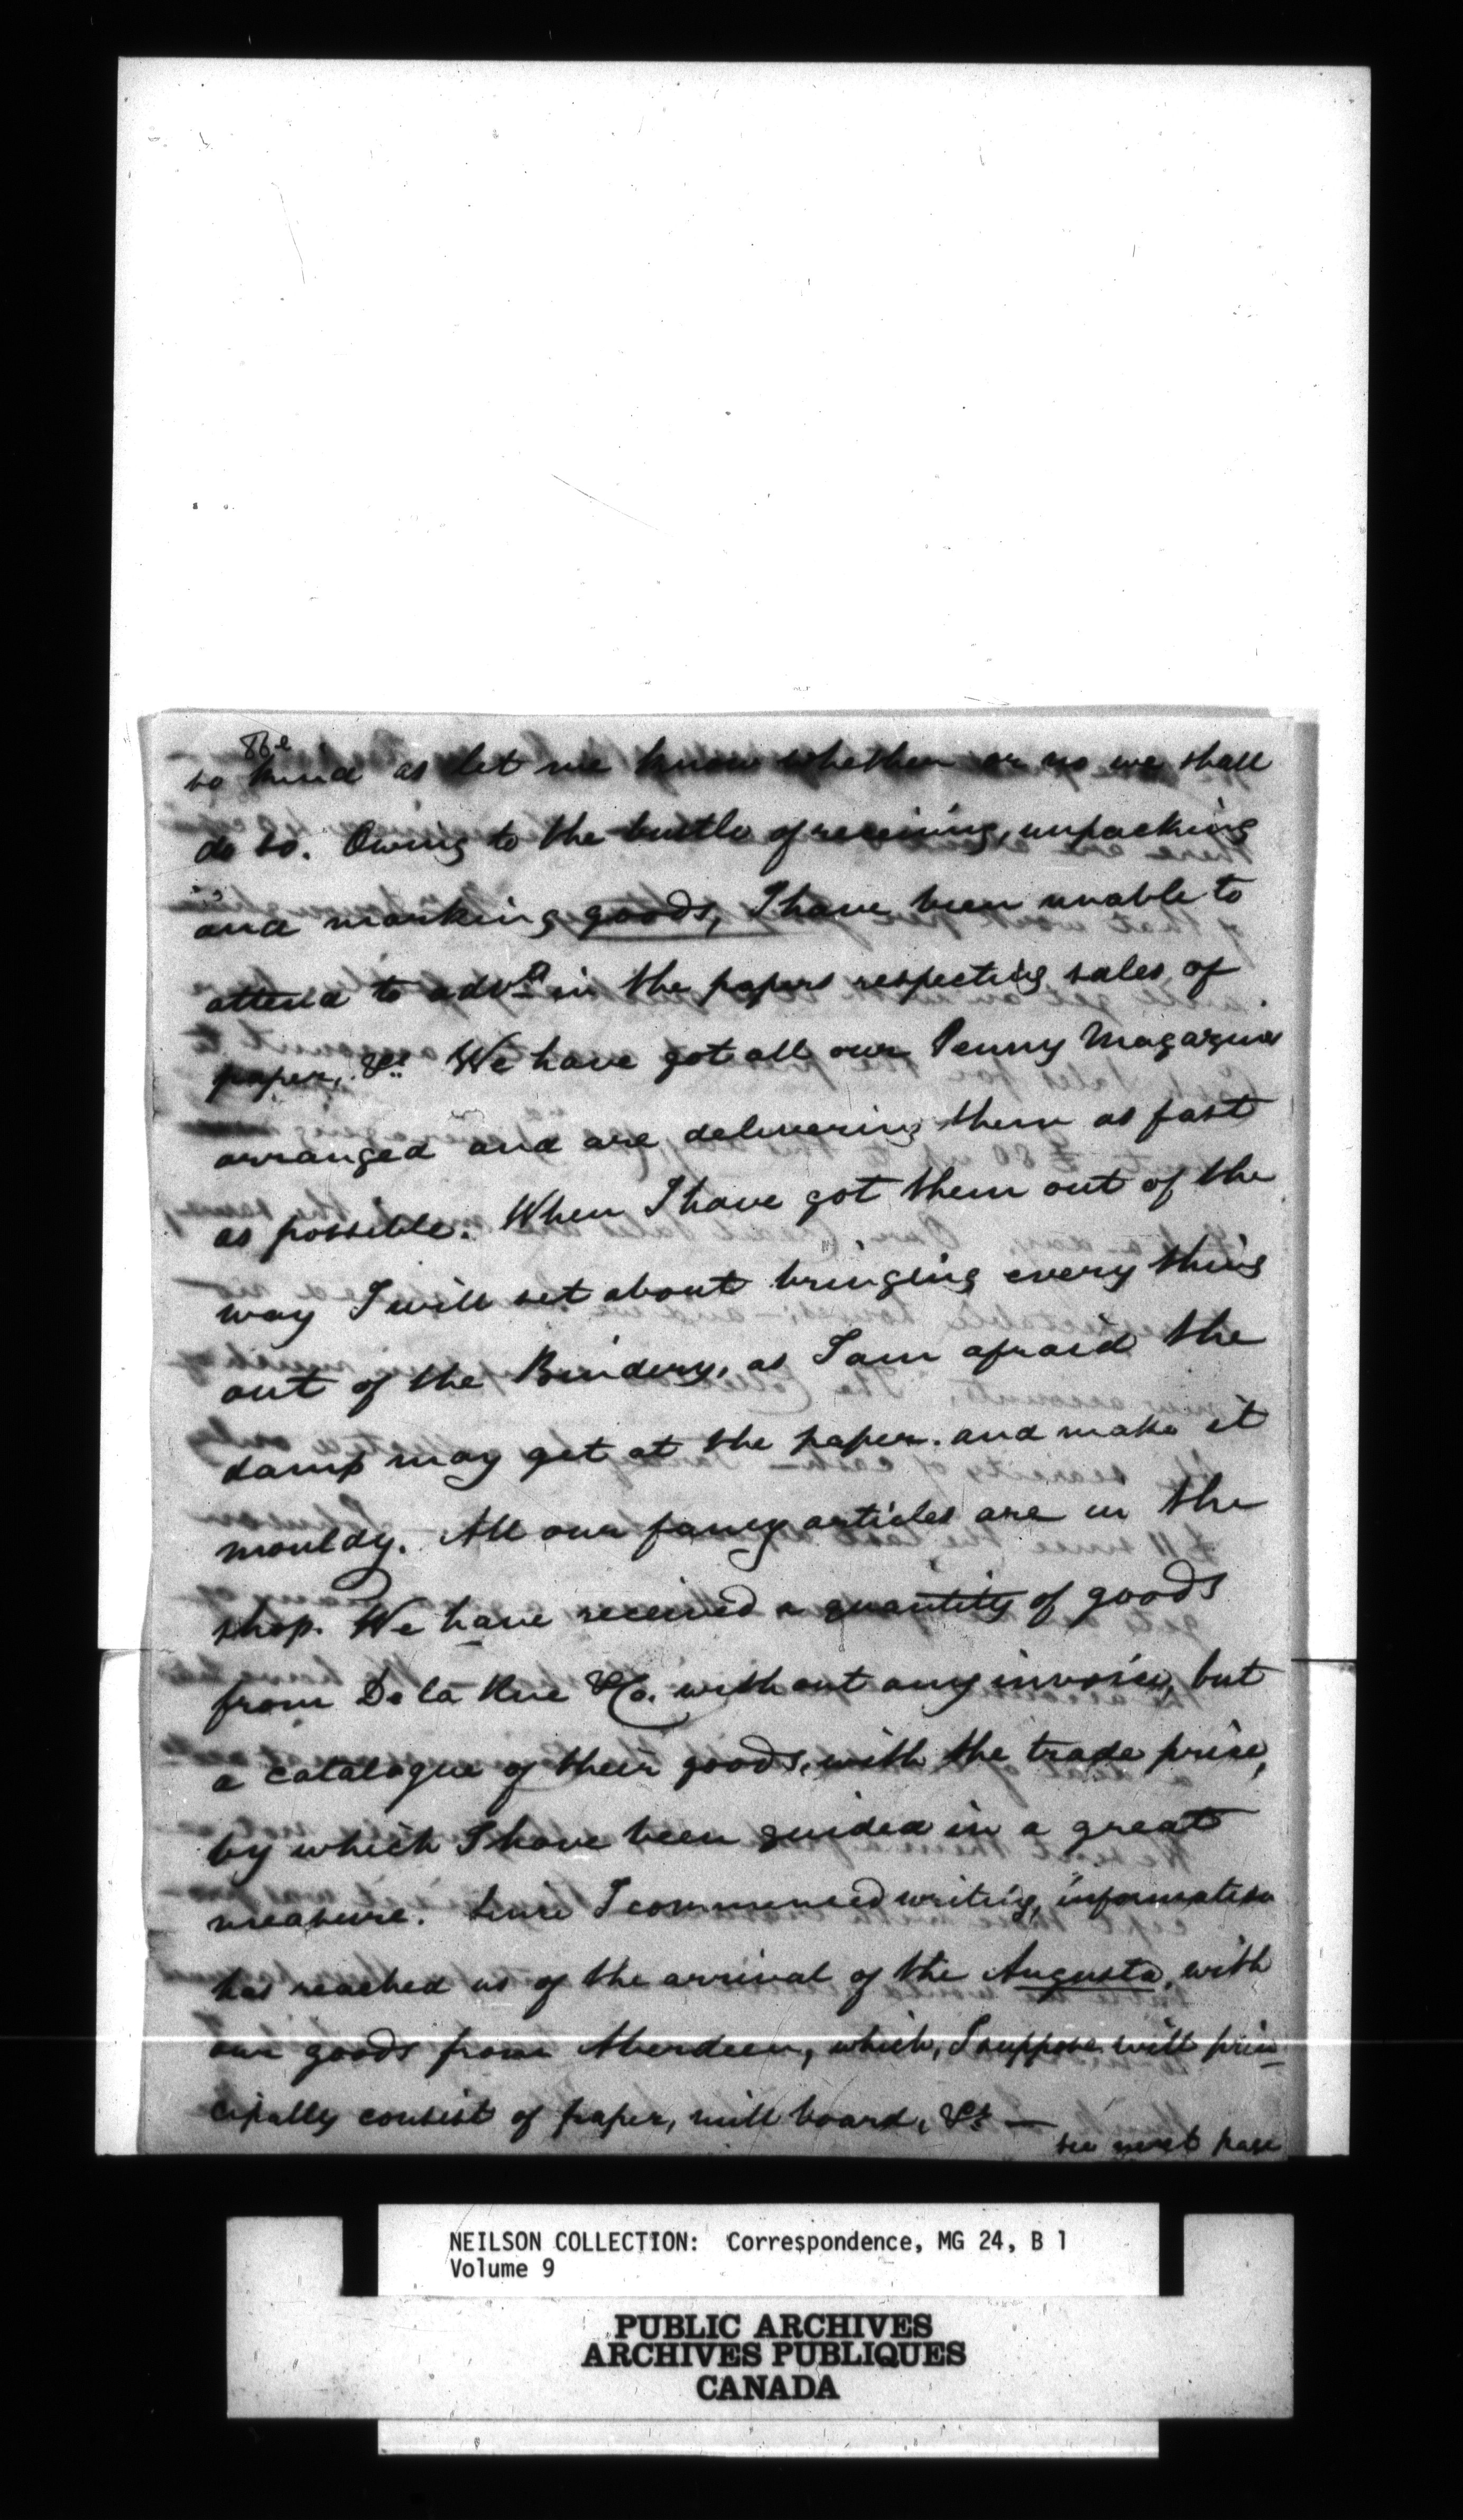 86e
so kind as let me know whether or no we shall
do so. Owing to the bustle of receiving, unpacking
and marking goods, I have been unable to
attend to advt in the papers respecting sales of
paper, &c. We have got all our Penny Magazines
arranged and are delivering them as fast
as possible. When I have got them out of the
way I will set about bringing every thing
out of the Bindery, as I am afraid the
damp may get at the paper and make it
mouldy. All our fancy articles are in the
shop. We have received a quantity of goods
from De la Rue & Co. without any invoice, but
a catalogue of their goods, with the trade price,
by which I have been guided in a great
measure. Since I commenced writing, information
has reached us of the arrival of the Augusta, with
our goods from Aberdeen, which, I suppose will prin-
cipally consist of paper, mill board, &c —
see next page
NEILSON COLLECTION: Correspondence, MG 24, B 1
Volume 9
PUBLIC ARCHIVES
ARCHIVES PUBLIQUES
CANADA